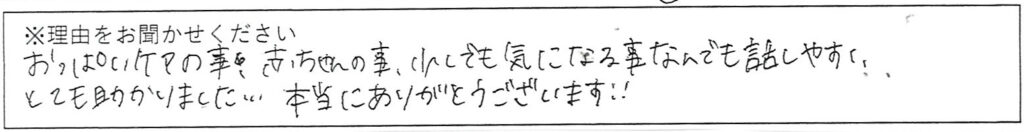 ※理由をお聞かせください
おっぱいケアの事や赤ちゃんの事、少しでも気になる事なんでも話しやすく、
とても助かりました… 本当にありがとうございます!!